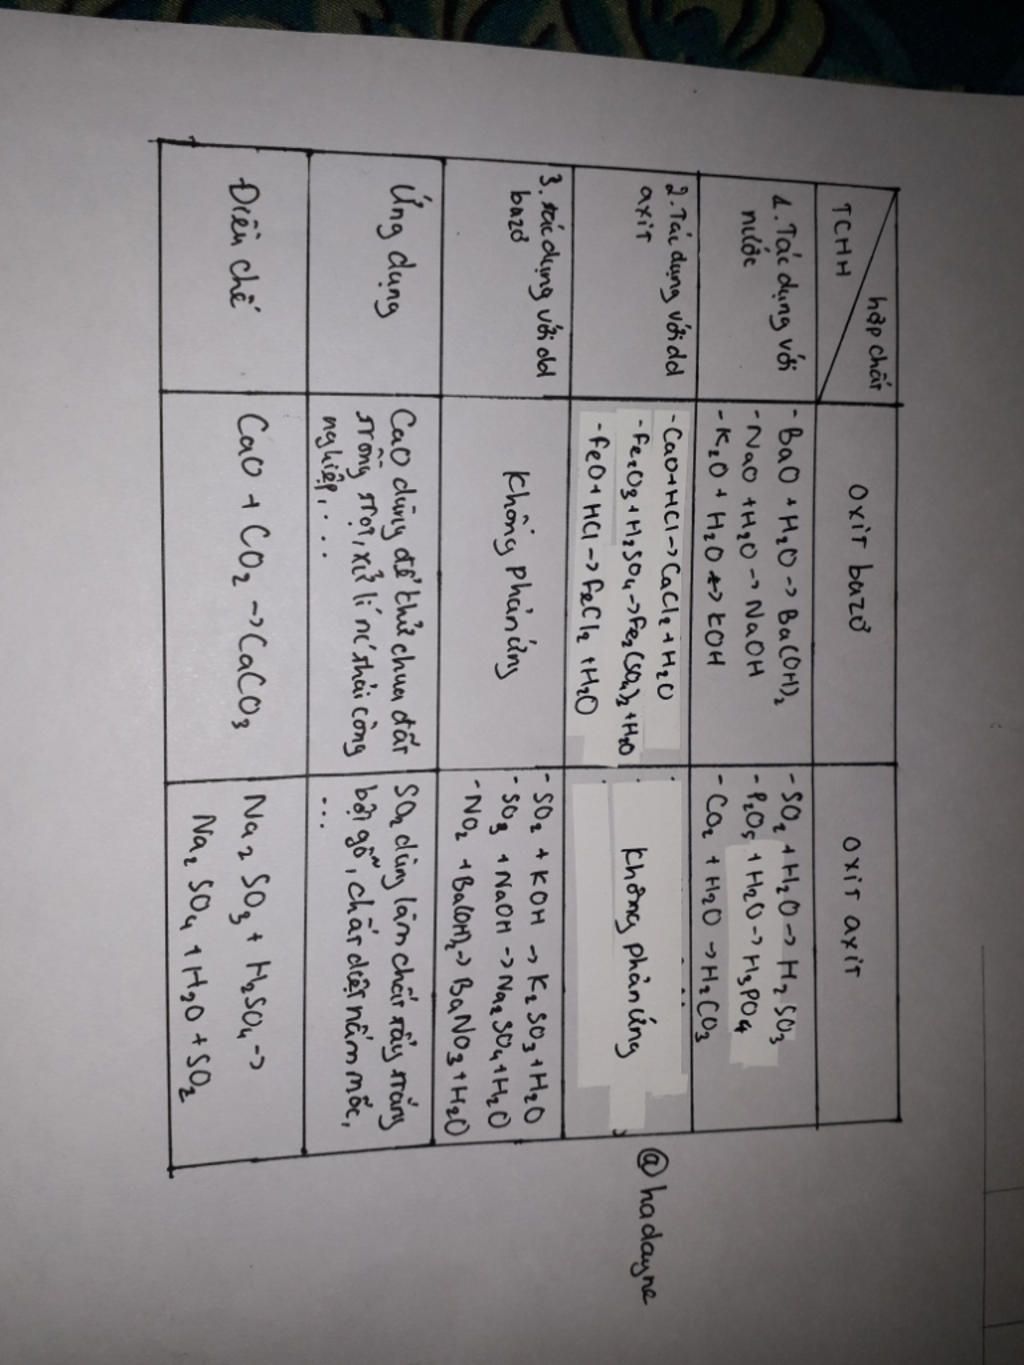 hợp chất
TCHH
oxit bazơ
oxit axit
1. Tác dụng với
nước
- BaO + H₂O -> Ba(OH)₂
- NaO + H₂O -> NaOH
- K₂O + H₂O -> KOH
- SO₂ + H₂O -> H₂SO₃
- P₂O₅ + H₂O -> H₃PO₄
- CO₂ + H₂O -> H₂CO₃
2. Tác dụng với dd
axit
- CaO + HCl -> CaCl₂ + H₂O
- Fe₂O₃ + H₂SO₄ -> Fe₂(SO₄)₂ + H₂O
- FeO + HCl -> FeCl₂ + H₂O
không phản ứng
3. tác dụng với dd
bazơ
không phản ứng
- SO₂ + KOH -> K₂SO₃ + H₂O
- SO₃ + NaOH -> Na₂SO₄ + H₂O
- NO₂ + Ba(OH)₂ -> BaNO₃ + H₂O
Ứng dụng
CaO dùng để thử chua đất
trồng trọt, xử lí nc thải công
nghiệp, ...
SO₂ dùng làm chất tẩy trắng
bột gỗ, chất diệt nấm mốc,
...
Điều chế
CaO + CO₂ -> CaCO₃
Na₂SO₃ + H₂SO₄ ->
Na₂SO₄ + H₂O + SO₂
@hadayne